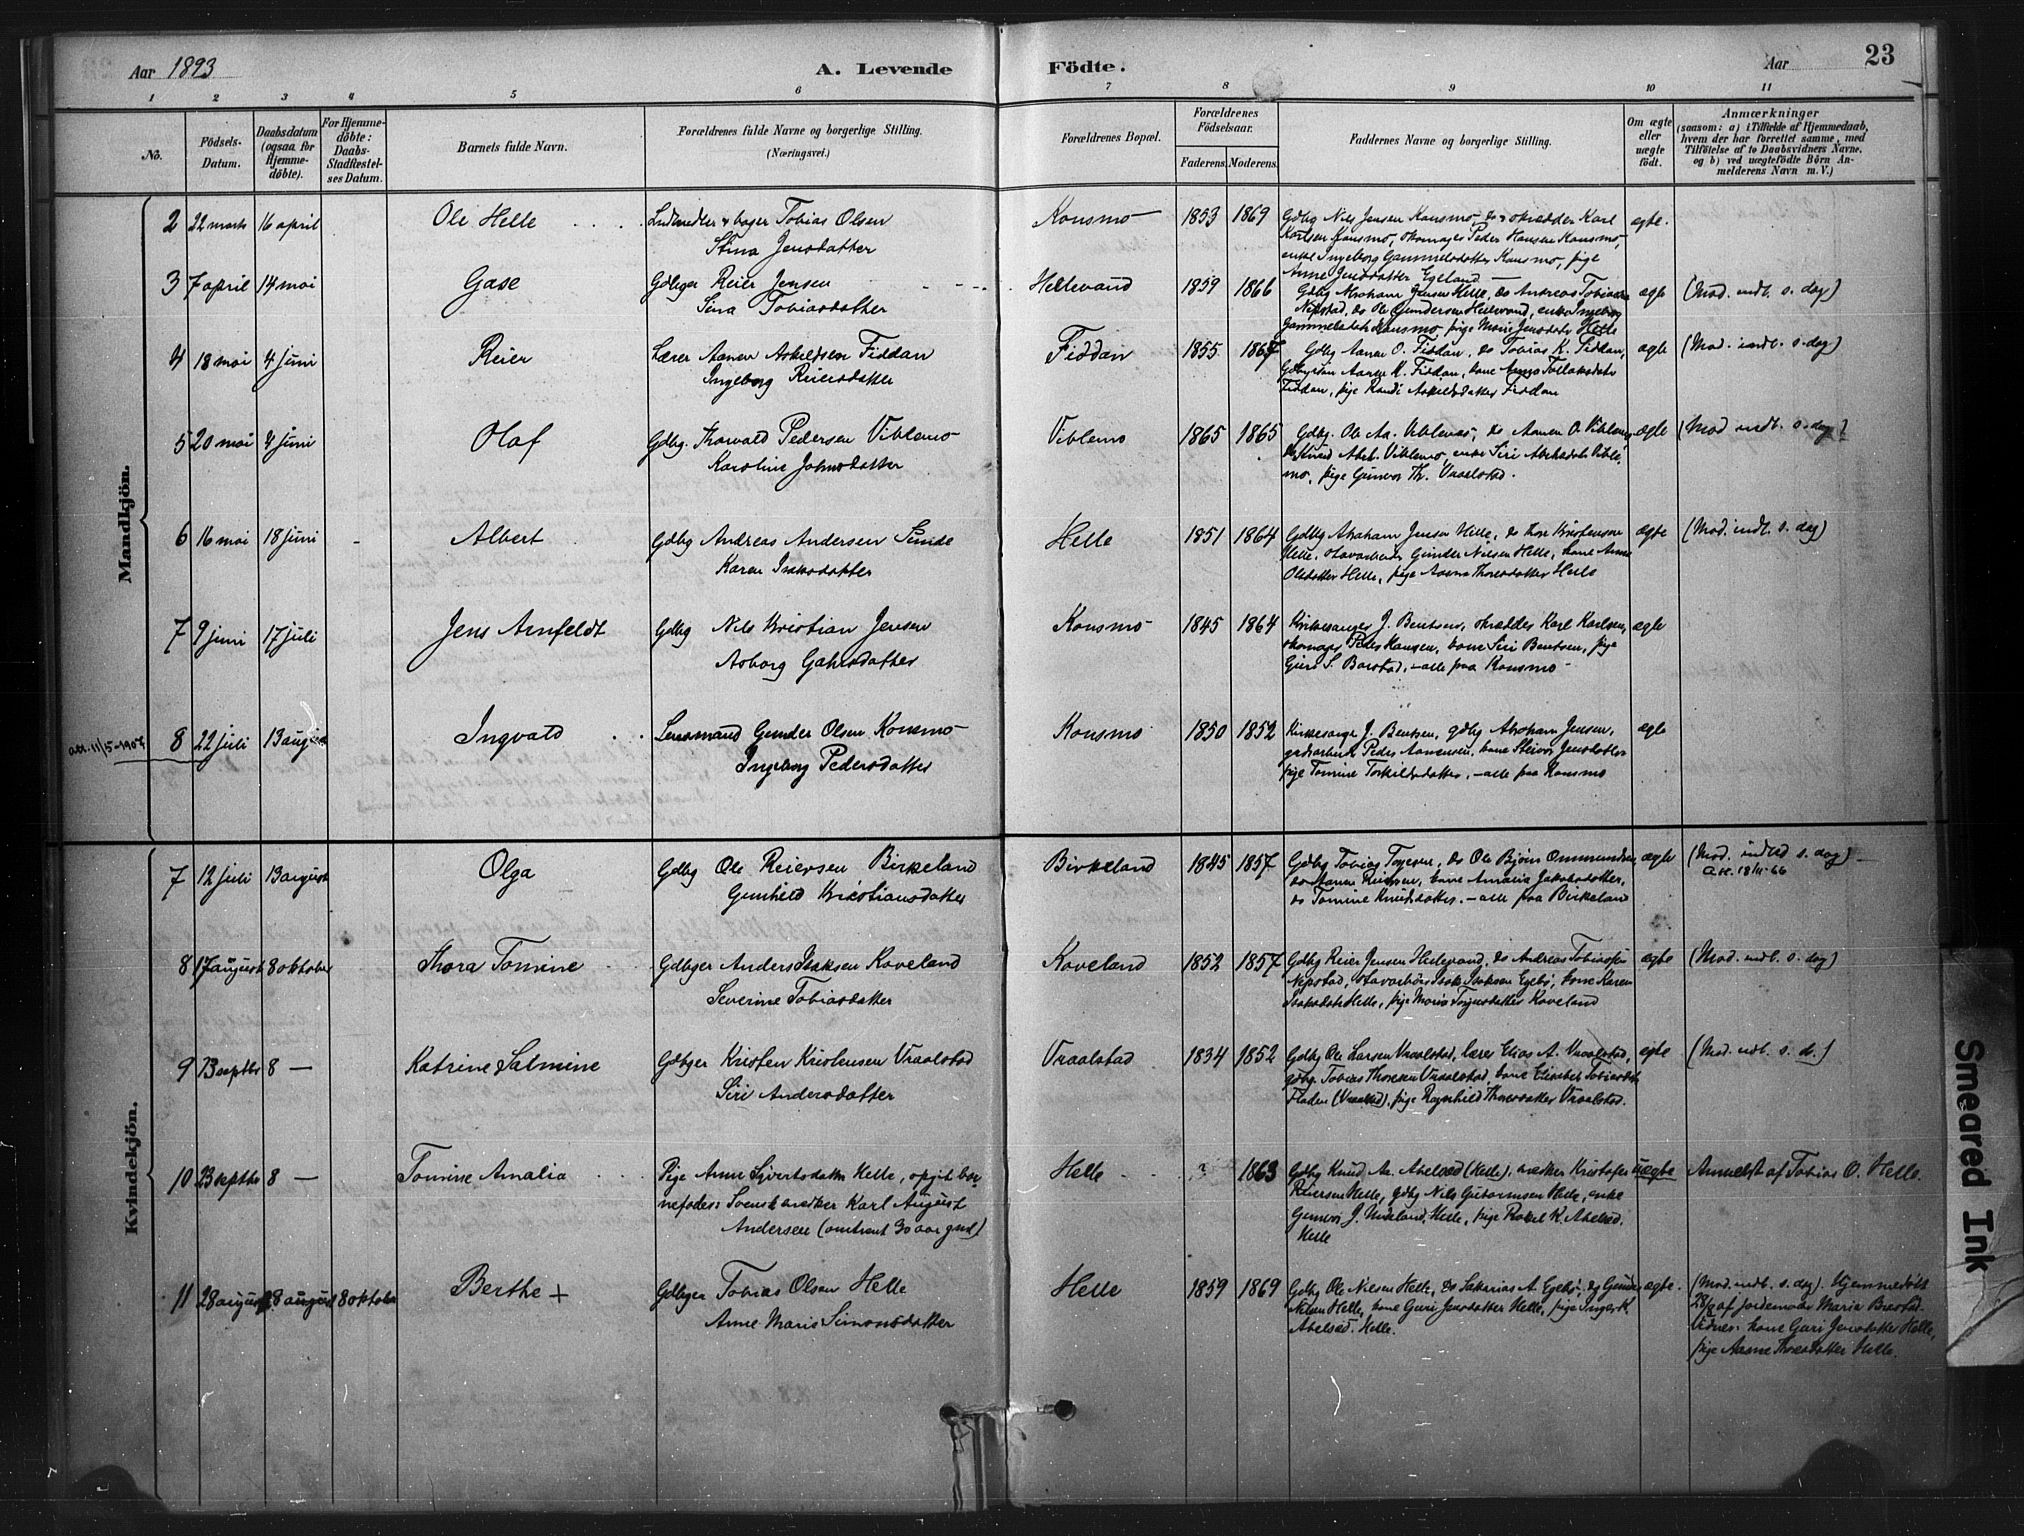 Aar 1893
A. Levende Födte.
Aar
23
1 2 3 4 5 6 7 8 9 10 11
No.
Födsels-Datum.
Daabsdatum (ogsaa for Hjemme-döbte).
For Hjemme-döbte: Daabs-Stadfæstel-ses Datum.
Barnets fulde Navn.
Forældrenes fulde Navne og borgerlige Stilling.
(Næringsvei.)
Forældrenes Bopæl.
Forældrenes Födselsaar.
Faderens. Moderens.
Faddernes Navne og borgerlige Stilling.
Om ægte eller uægte födt.
Anmærkninger
(saasom: a) i Tilfælde af Hjemmedaab, hvem der har forrettet samme, med Tilföielse af to Daabsvidners Navne, og b) ved uægtefödte Börn Anmelderens Navn m. V.)
Mandkjön.
2 22 marts 16 april Ole Helle Tobias Olsen
Stina Jensdatter
Konsmo 1853 1869 Gdbg Nils Jensen Konsmo, skrædder Karl
Karlsen Konsmo, skomager Peder Hansen Konsmo,
enke Ingeborg Gammelsdatter Konsmo, pige
Anne Jensdatter Egeland
ægte.
3 7 april 14 mai Gase Gdbger Reier Jensen
Sina Tobiasdatter
Hellevand 1859 1866 Gdbg Abraham Jensen Helle, do Andreas Tobiassen
Nepstad, do Ole Gundersen Hellevand, enke Ingeborg
Gammelsdatter Konsmo, pige Marie Jensdatter Helle
ægte (Mod. indl. s. dag)
4 18 mai 4 juni Reier Lærer Aanen Askildsen Fiddan
Ingeborg Reiersdatter
Fiddan 1855 1867 Gdbg Aanen O. Fiddan, do Tobias K. Fiddan,
Aanen K. Fiddan, kone Anne Tollaksdatter
Fiddan, pige Randi Askildsdatter Fiddan
ægte (Mod. indl. s. dag)
5 20 mai 4 juni Olaf Gdbg. Thorvald Pedersen Viblemo
Karoline Johnsdatter
Viblemo 1865 1865 Gdbg. Ole Aa. Viblemo, do Aanen O. Viblemo,
do Knud Abel. Viblemo, enke Siri Viblemo,
pige Gunvor Th. Vraalstad.
ægte (Mod. indl. s. dag)
6 16 mai 18 juni Albert Gdbg Andreas Andersen Sunde
Karen Isaksdatter
Helle 1851 1864 Gdbg Abraham Jensen Helle, do Thore Kristensen
Helle, Gunder Nilsen Helle, kone Anne
Olsdatter Helle, pige Aasne Thoresdatter Helle
ægte (Mod. indl. s. dag)
7 9 juni 17 juli Jens Arnfeldt Gdbg Nils Kristian Jensen
Asborg Gahrsdatter
Konsmo 1845 1864 Kirkesanger J. Bentsen, skrædder Karl Karlsen,
skomager Peder Hansen, kone Siri Bentsen, pige
Guri S. Barstad, – alle paa Konsmo –
ægte
att. 11/5-1907
8 22 juli 13 august Ingvald Lensmand Gunder Olsen Konsmo
Ingeborg Pedersdatter
Konsmo 1850 1852 Kirkesanger J. Bentsen, gdbg Abraham Jensen,
Peder Aanensen, kone Jensdatter
pige Tomine Torkildsdatter, – alle paa Konsmo
ægte
Kvindekjön.
7 12 juli 13 august Olga Gdbg Ole Reiersen Birkeland
Gunhild Kristiansdatter
Birkeland 1845 1857 Gdbg Tobias Tørresen, do Ole Bjørn Ommundsen,
do Aanen Reiersen, kone Amalia Jakobsdatter,
do Tomine Knudsdatter. – alle paa Birkeland
ægte (Mod. indled s. dag) –
att. 18/11-66
8 17 august 8 oktober Thora Tomine Gdbger Anders Isaksen Koveland
Severine Tobiasdatter
Koveland 1852 1857 Gdbg Reier Jensen Hellevand, do Andreas Tobiassen
Nepstad, Isak Isaksen Egebø, kone Karen
Isaksdatter Helle, pige Marie Koveland
ægte (Mod. indl. s. dag)
9 23 septbr 8 — Katrine Salmine Gdbger Kristen Kristensen Vraalstad
Siri Andersdatter
Vraalstad 1834 1852 Gdbg Ole Larsen Vraalstad, lærer Elias A. Vraalstad,
gdbg. Tobias Thoresen Vraalstad, kone Elisabet Tobiasdtr
Fladen (Vraalstad), pige Ragnhild Thoresdatter Vraalstad.
ægte (Mod. indl. s. d.)
10 23 septbr 8 — Tomine Amalia Pige Anne Syvertsdatter Helle, opgit bar-
nefader: Svensk Karl August
Andersen (omtrent 30 aar gml)
Helle ? 1863 Gdbg Knud Aa. Abelsæd (Helle), Kristofer
Reiersen Helle, gdbg Nils Guttormsen Helle, enke
Gunvor J. Helle, pige Rakel K. Abelsæd.
Helle
uægte Anmeldt af Tobias O. Helle.
11 28 august 28 august 8 oktober Berthe + Gdbger Tobias Olsen Helle
Anne Marie Simonsdatter
Helle 1859 1869 Gdbg Ole Nielsen Helle, do Sakarias A. Egebø, do Gunder
Nilsen Helle, kone Guri Jensdatter Helle, pige Inger K.
Abelsæd. Helle.
ægte. (Mod. indl. s. dag). Hjemmedøbt
28/8 af jordemoder Maria
vidner: kone Guri Jensdatter Helle,
pige Aasne Thoresdatter Helle.
Smeared Ink